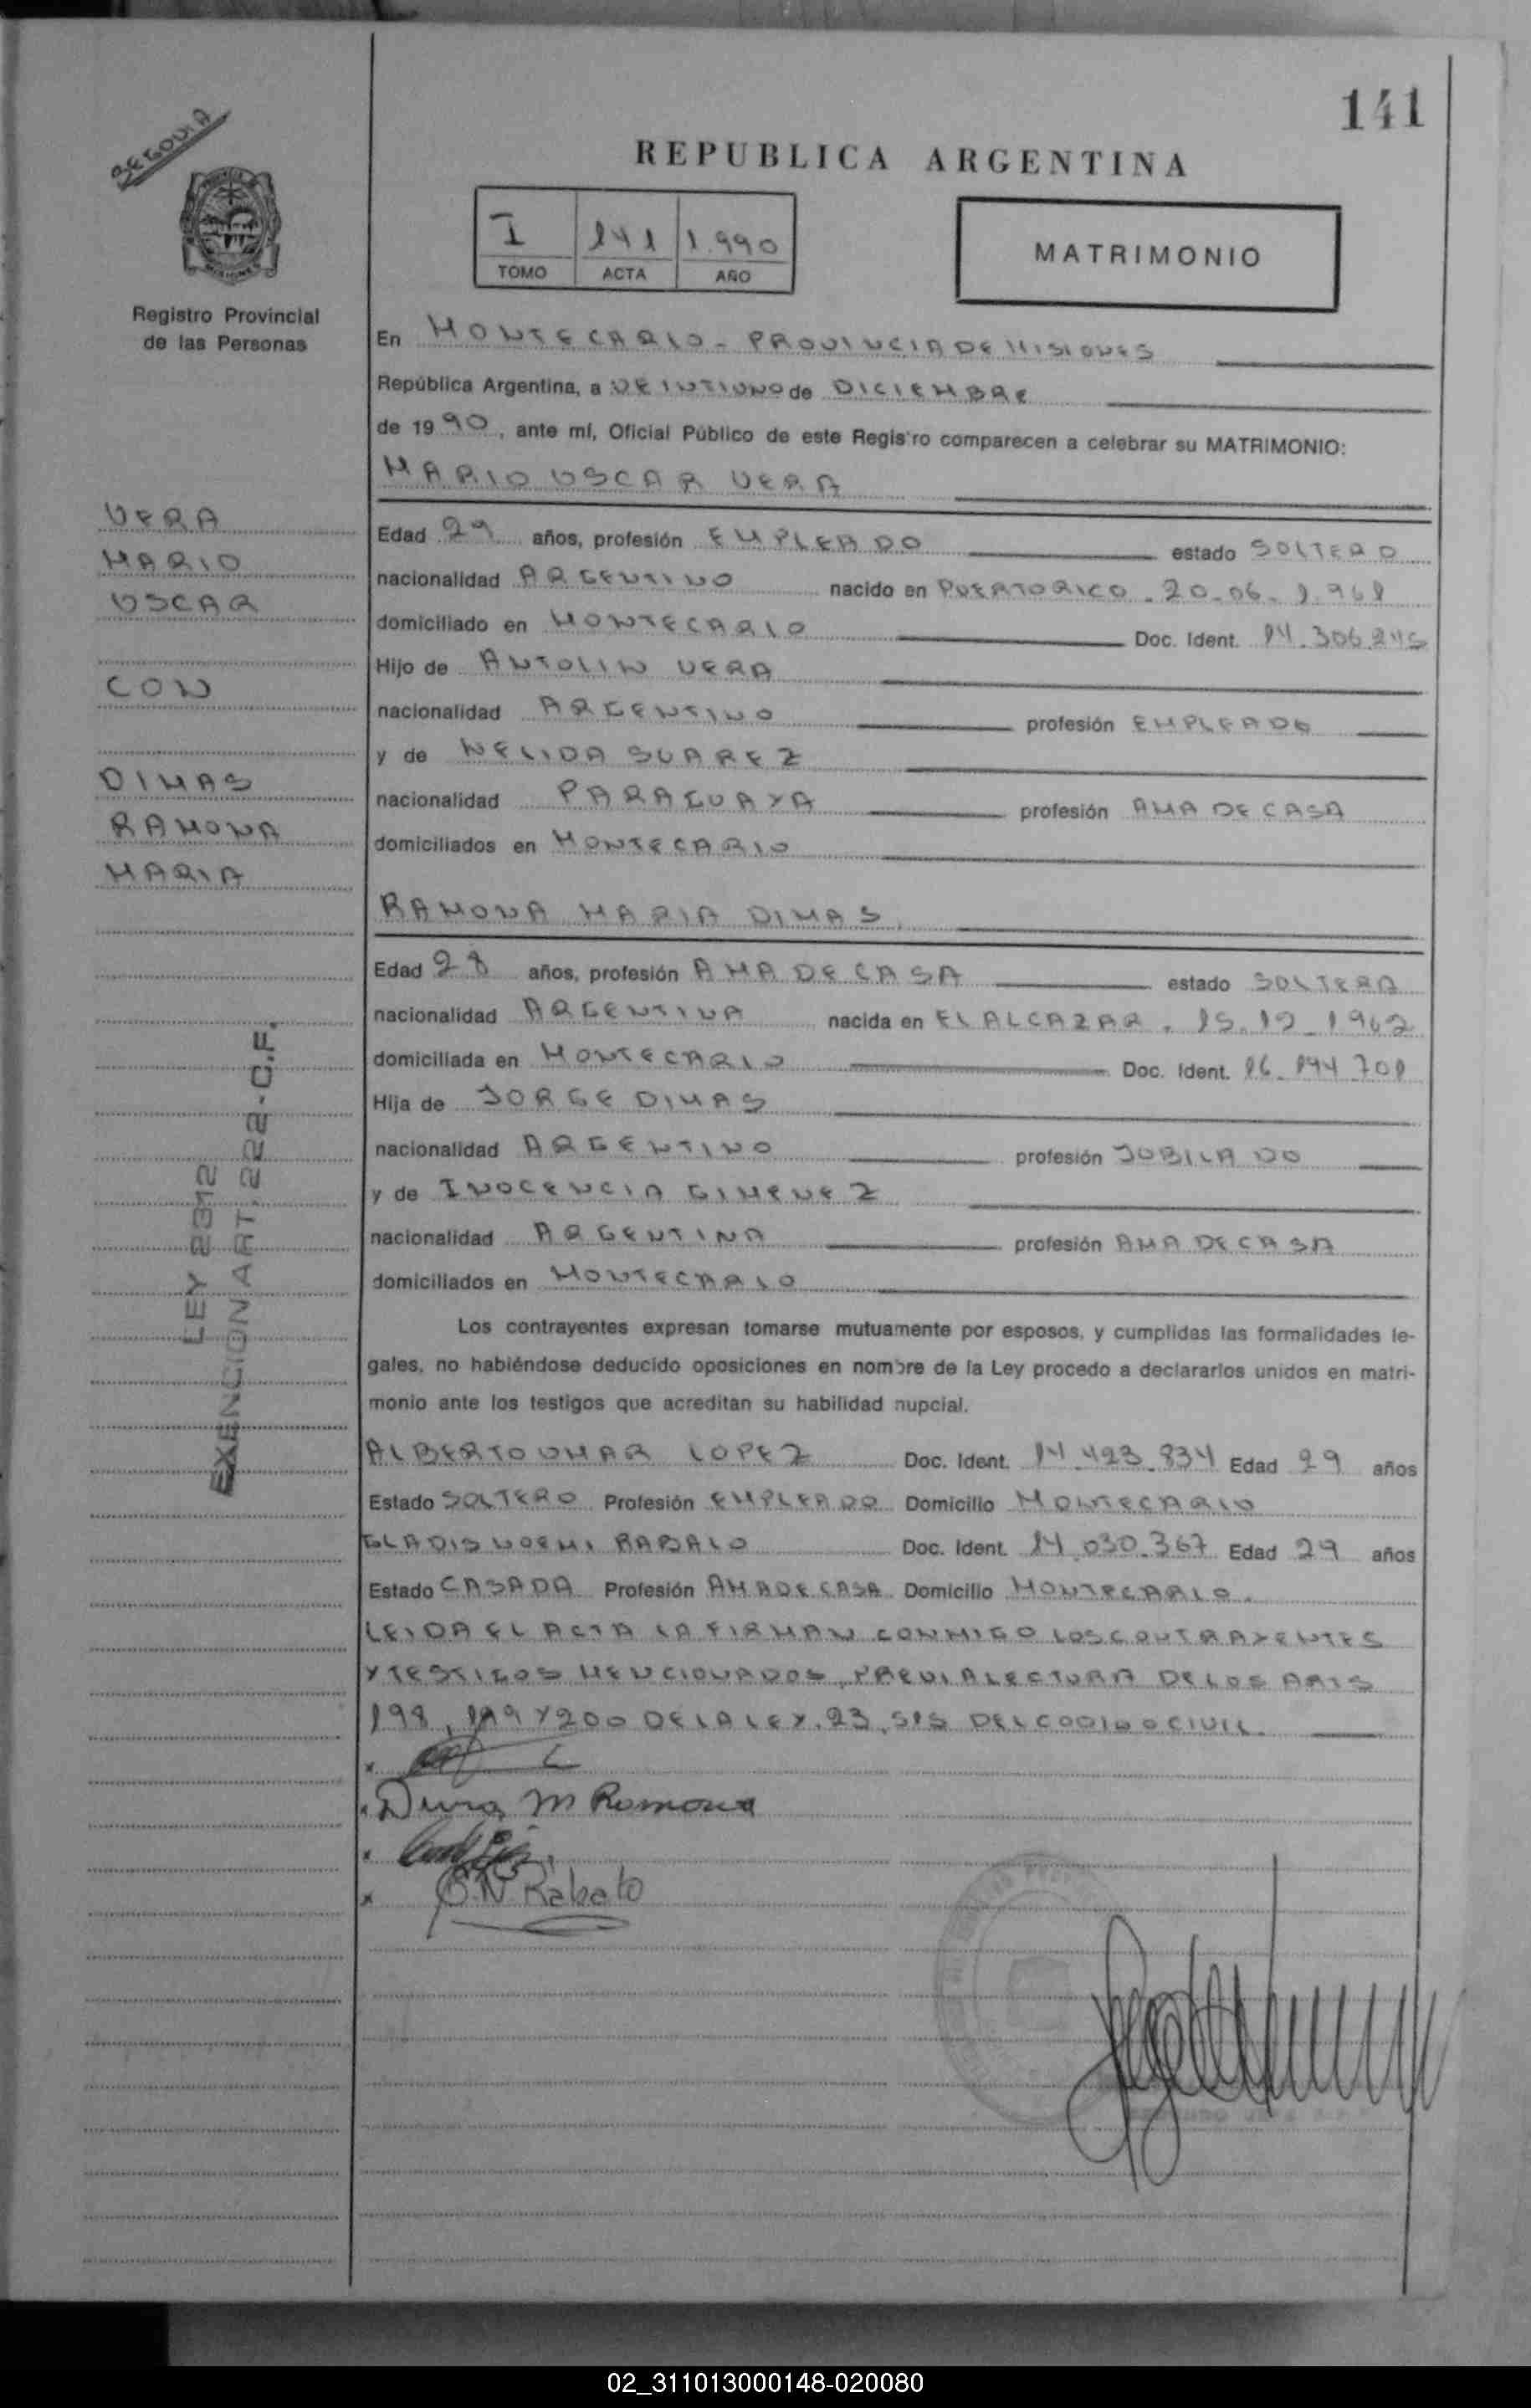 141
SEGOVIA
REPUBLICA ARGENTINA
I 141 1.990
TOMO ACTA AÑO
MATRIMONIO
Registro Provincial
de las Personas
En MONTECARLO - PROVINCIA DE MISIONES
República Argentina, a VEINTIUNO de DICIEMBRE
de 1990, ante mí, Oficial Público de este Registro comparecen a celebrar su MATRIMONIO:
MARIO OSCAR VERA
VERA
MARIO
OSCAR
CON
DIMAS
RAMONA
MARIA
Edad 29 años, profesión EMPLEADO estado SOLTERO
nacionalidad ARGENTINO nacido en PUERTO RICO - 20-06-1.961
domiciliado en MONTECARLO Doc. Ident. 14.306.245
Hijo de ANTOLIN VERA
nacionalidad ARGENTINO profesión EMPLEADO
y de NELIDA SUAREZ
nacionalidad PARAGUAYA profesión AMA DE CASA
domiciliados en MONTECARLO
RAMONA MARIA DIMAS
Edad 28 años, profesión AMA DE CASA estado SOLTERA
nacionalidad ARGENTINA nacida en EL ALCAZAR. 15.12-1962
domiciliada en MONTECARLO Doc. Ident. 16.194.701
Hija de JORGE DIMAS
nacionalidad ARGENTINO profesión JUBILADO
y de INOCENCIA GIMENEZ
nacionalidad ARGENTINA profesión AMA DE CASA
domiciliados en MONTECARLO
LEY 2312
EXENCION ART. 222 - C.F.
Los contrayentes expresan tomarse mutuamente por esposos, y cumplidas las formalidades le-
gales, no habiéndose deducido oposiciones en nombre de la Ley procedo a declararlos unidos en matri-
monio ante los testigos que acreditan su habilidad nupcial.
ALBERTO OMAR LOPEZ Doc. Ident. 14.423.834 Edad 29 años
Estado SOLTERO Profesión EMPLEADO Domicilio MONTECARLO
GLADIS NOEMI RABALO Doc. Ident. 14.030.367 Edad 29 años
Estado CASADA Profesión AMA DE CASA Domicilio MONTECARLO.
LEIDA EL ACTA LA FIRMAN CONMIGO LOS CONTRAYENTES
Y TESTIGOS MENCIONADOS, PREVIA LECTURA DE LOS ARTS
198, 199 Y 200 DE LA LEY. 23.515 DEL CODIGO CIVIL.
x
x M Romona
x
x G.N. Rabalo
02_311013000148-020080